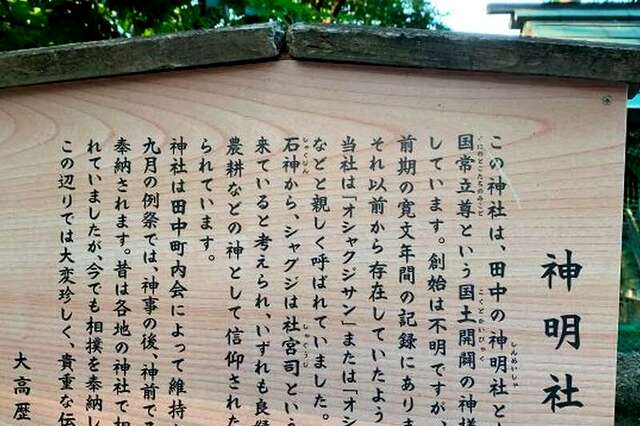 神明社
この神社は、田中の神明社と
しんめいしゃ
国常立尊という国土開闢の神様
くにのとこたちのみこと
こくどかいびゃく
しています。創始は不明ですが、
前期の寛文年間の記録にありま
それ以前から存在していたよう
当社は「オシャクジサン」または「オシ
などと親しく呼ばれていました。
石神から、シャグジは社宮司という
しゃくじん
しゃぐうじ
来ていると考えられ、いずれも良縁
農耕などの神として信仰された
られています。
神社は田中町内会によって維持
九月の例祭では、神事の後、神前で
奉納されます。昔は各地の神社で相
れていましたが、今でも相撲を奉納し
この辺りでは大変珍しく、貴重な伝
大高歴